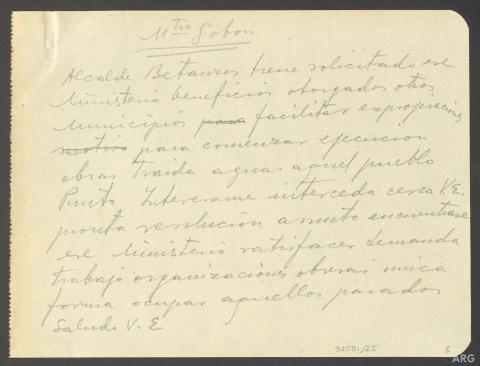 Mtro Gobon
Alcalde Betanzos tiene solicitado ese
Ministerio beneficios otorgados otros
Municipios para facilitar expropiaciones
para comenzar ejecucion
obras traida aguas aquel pueblo
Punto Interesame interceda cerca V.E.
pronta resolucion asunto encuentrase
ese Ministerio satisfacer demanda
trabajo organizaciones obreras unica
forma ocupar aquellos parados
Saludo V.E
32531/25
8
ARG